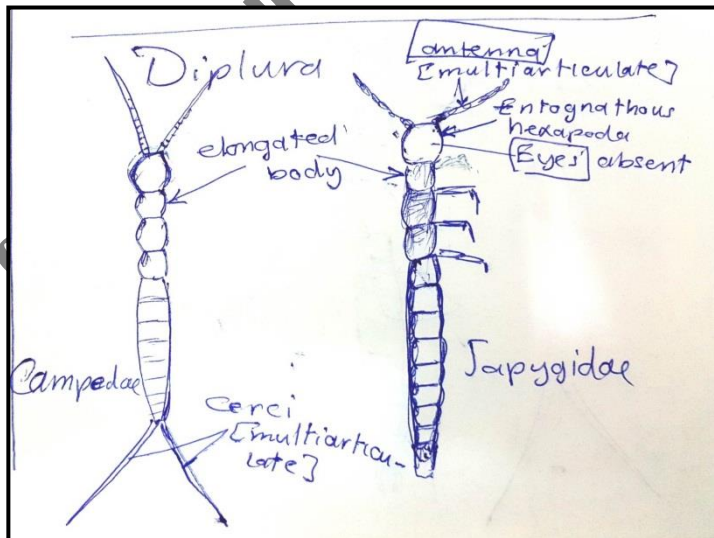 Diplura
antenna
[multiarticulate]
Entognathous
hexapoda
[Eyes] absent
elongated
body
Campedae
Japygidae
cerci
[multiarticu-
late]